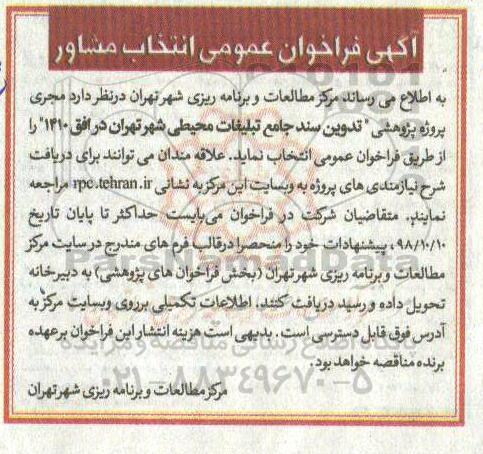 آگهی فراخوان عمومی انتخاب مشاور
به اطلاع می رساند مرکز مطالعات و برنامه ریزی شهر تهران درنظر دارد مجری
پروژه پژوهشی" تدوین سند جامع تبلیغات محیطی شهر تهران در افق ۱۴۱۰" را
از طریق فراخوان عمومی انتخاب نماید. علاقه مندان می توانند برای دریافت
شرح نیازمندی های پروژه به وبسایت این مرکز به نشانی rpc.tehran.ir مراجعه
نمایند. متقاضیان شرکت در فراخوان می‌بایست حداکثر تا پایان تاریخ
۹۸/۱۰/۱۰، پیشنهادات خود را منحصرا درقالب فرم های مندرج در سایت مرکز
مطالعات و برنامه ریزی شهر تهران (بخش فراخوان های پژوهشی) به دبیرخانه
تحویل داده و رسید دریافت کنند. اطلاعات تکمیلی برروی وبسایت مرکز به
آدرس فوق قابل دسترسی است. بدیهی است هزینه انتشار این فراخوان برعهده
برنده مناقصه خواهد بود.
۰۲۱-۸۸۳۴۹۶۷۰-۵
مرکز مطالعات و برنامه ریزی شهر تهران